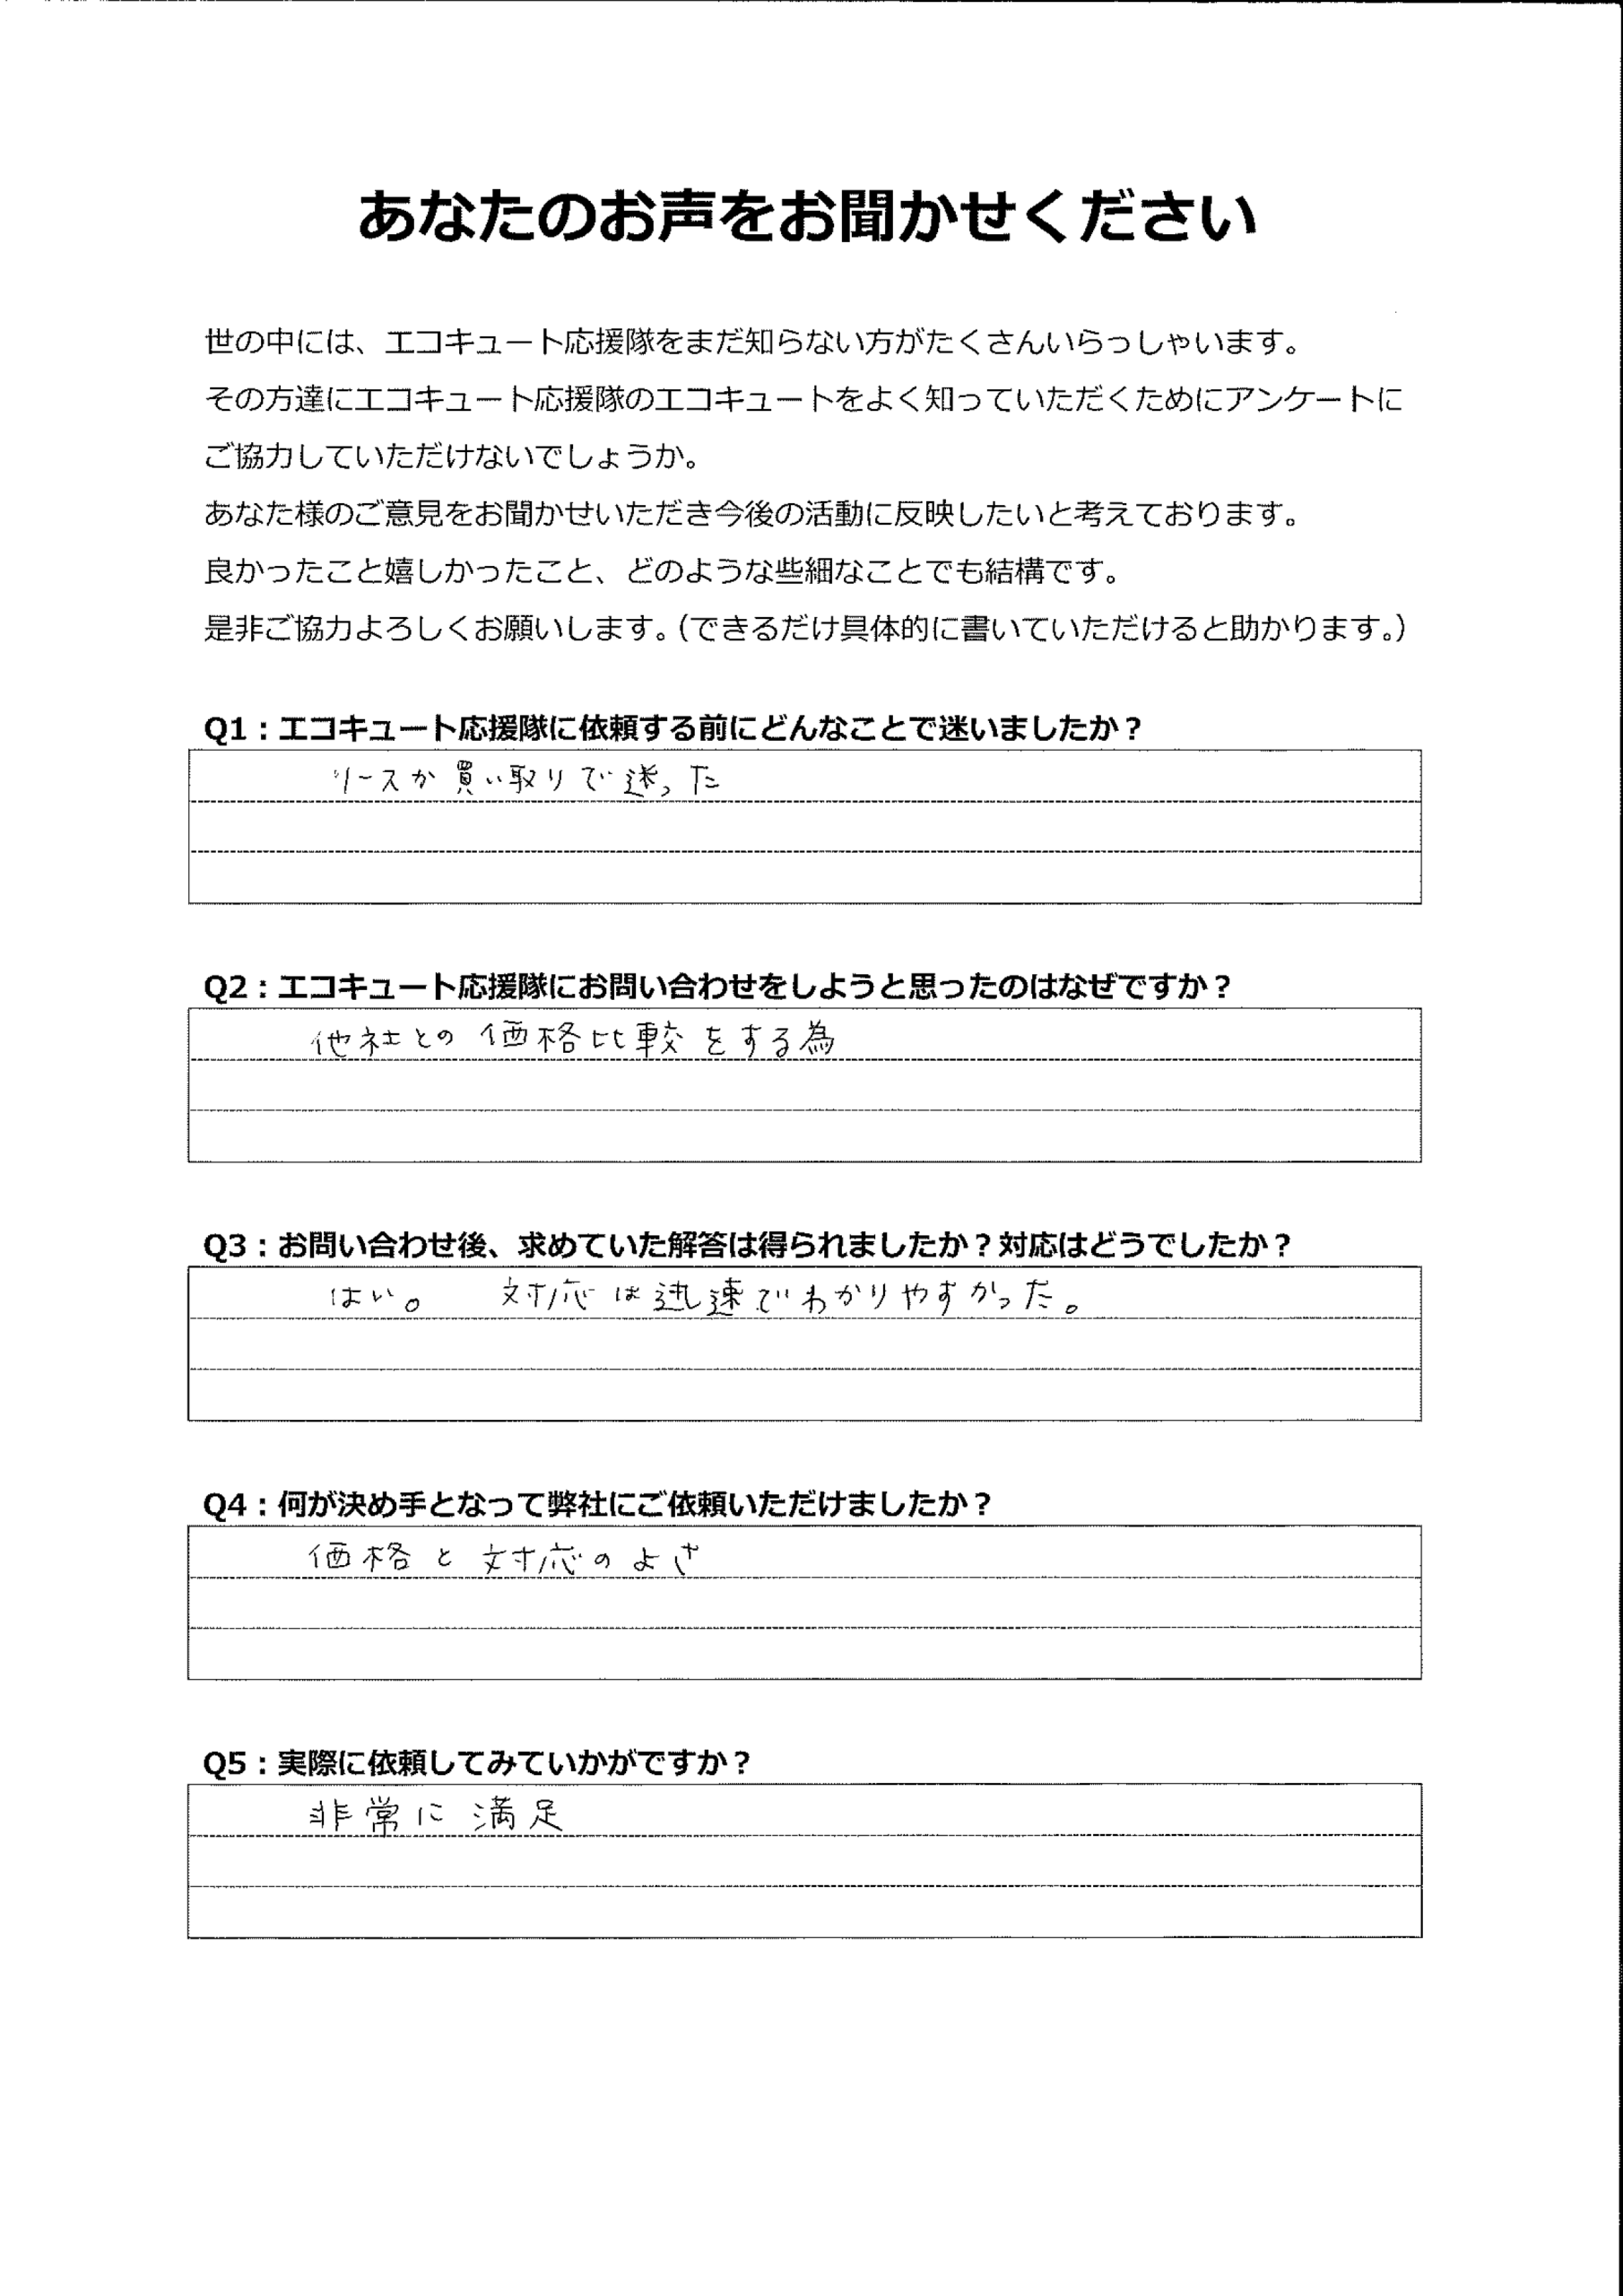 あなたのお声をお聞かせください
世の中には、エコキュート応援隊をまだ知らない方がたくさんいらっしゃいます。
その方達にエコキュート応援隊のエコキュートをよく知っていただくためにアンケートに
ご協力していただけないでしょうか。
あなた様のご意見をお聞かせいただき今後の活動に反映したいと考えております。
良かったこと嬉しかったこと、どのような些細なことでも結構です。
是非ご協力よろしくお願いします。（できるだけ具体的に書いていただけると助かります。）
Q1：エコキュート応援隊に依頼する前にどんなことで迷いましたか？
リースか買い取りで迷った
Q2：エコキュート応援隊にお問い合わせをしようと思ったのはなぜですか？
他社との価格比較をする為
Q3：お問い合わせ後、求めていた解答は得られましたか？対応はどうでしたか？
はい。 対応は迅速でわかりやすかった。
Q4：何が決め手となって弊社にご依頼いただけましたか？
価格と対応のよさ
Q5：実際に依頼してみていかがですか？
非常に満足